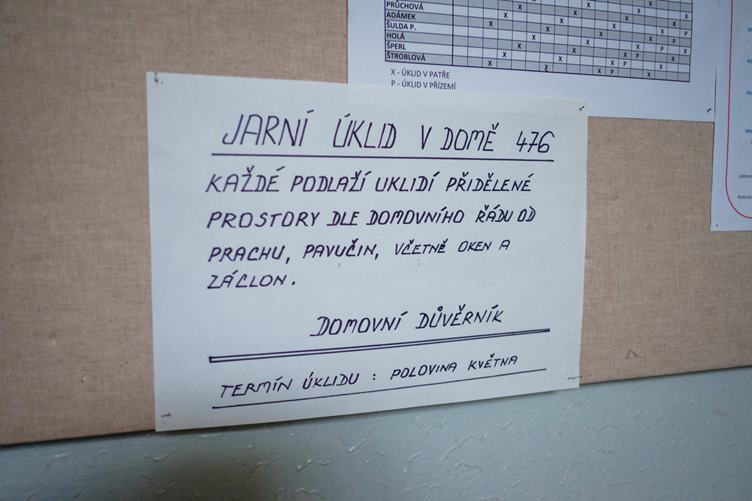 PRŮCHOVÁ
ADÁMEK
ŠULDA P.
HOLÁ
ŠPERL
ŠTROBLOVÁ
X - ÚKLID V PATŘE
P - ÚKLID V PŘÍZEMÍ
JARNÍ ÚKLID V DOMĚ 476
KAŽDÉ PODLAŽÍ UKLIDÍ PŘIDĚLENÉ
PROSTORY DLE DOMOVNÍHO ŘÁDU OD
PRACHU, PAVUČIN, VČETNĚ OKEN A
ZÁCLON.
DOMOVNÍ DŮVĚRNÍK
TERMÍN ÚKLIDU : POLOVINA KVĚTNA